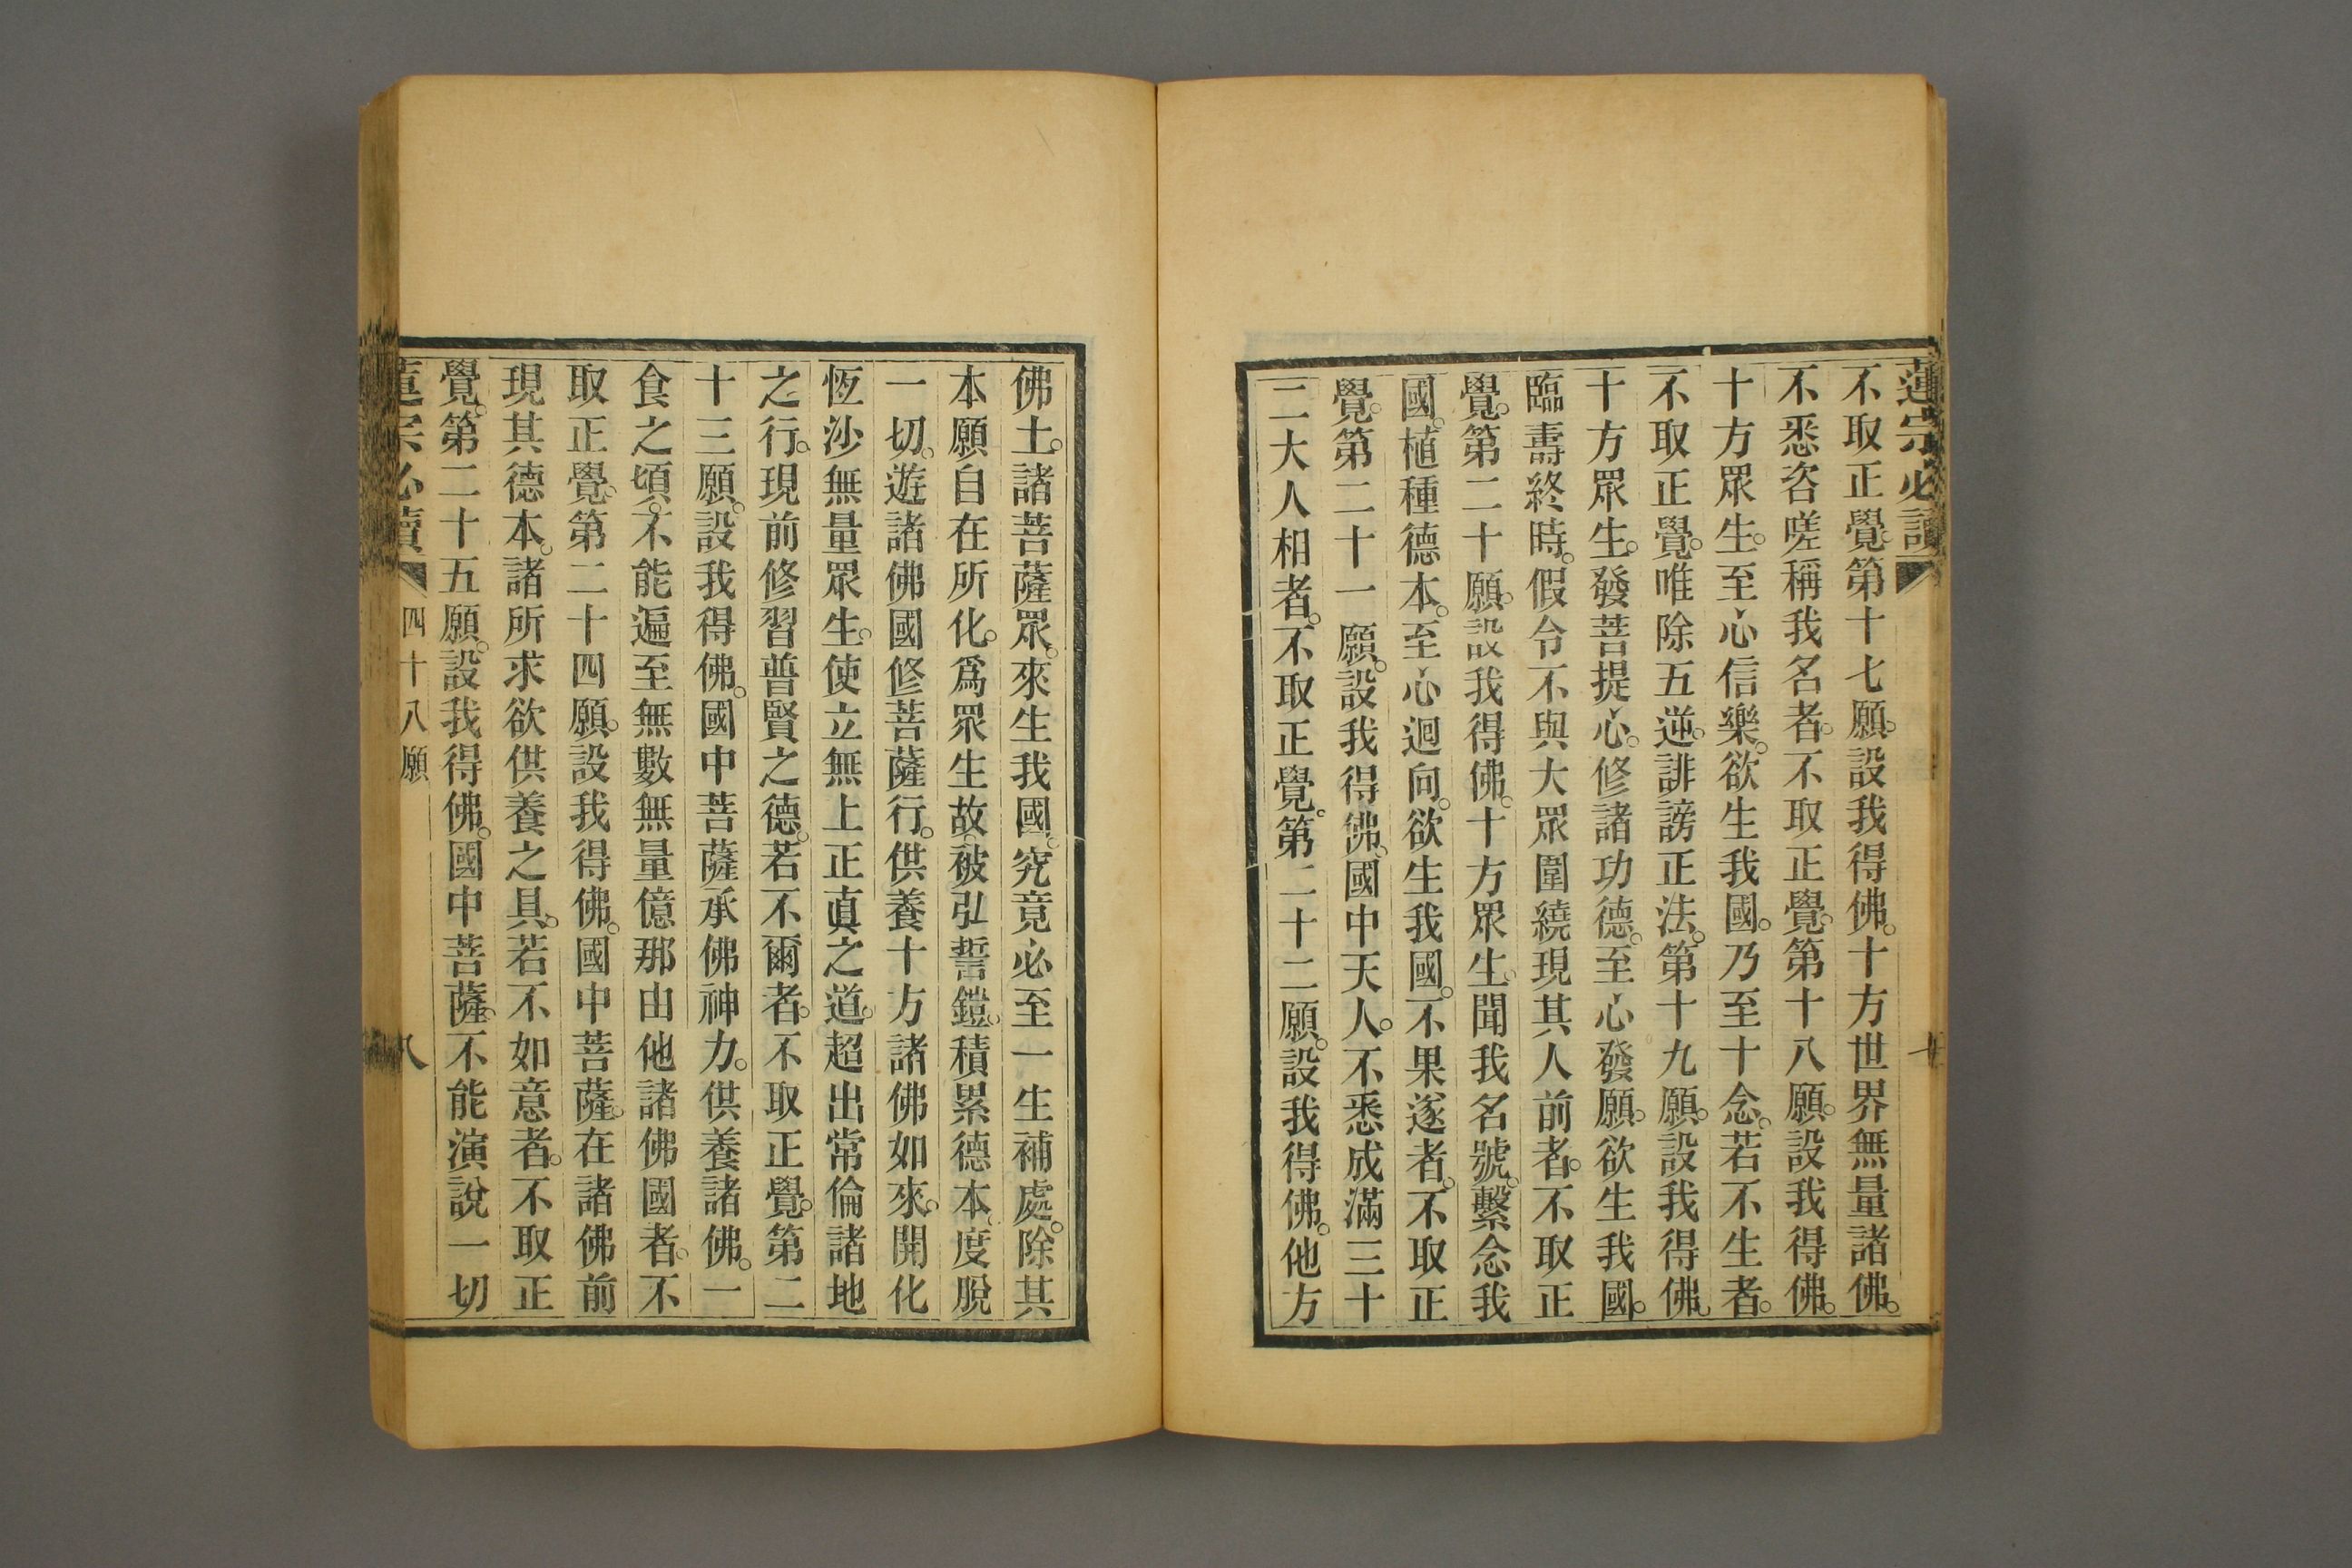 蓮宗必讀
不取正覺。第十七願。設我得佛。十方世界無量諸佛。
不悉咨嗟稱我名者。不取正覺。第十八願。設我得佛。
十方眾生。至心信樂。欲生我國。乃至十念。若不生者。
不取正覺。唯除五逆。誹謗正法。第十九願。設我得佛。
十方眾生。發菩提心。修諸功德。至心發願。欲生我國。
臨壽終時。假令不與大眾圍繞現其人前者。不取正
覺。第二十願。設我得佛。十方眾生。聞我名號。繫念我
國。植種德本。至心迴向。欲生我國。不果遂者。不取正
覺。第二十一願。設我得佛。國中天人。不悉成滿三十
二大人相者。不取正覺。第二十二願。設我得佛。他方
佛土。諸菩薩眾。來生我國。究竟必至一生補處。除其
本願自在所化。為眾生故。被弘誓鎧。積累德本。度脫
一切。遊諸佛國修菩薩行。供養十方諸佛如來。開化
恆沙無量眾生。使立無上正真之道。超出常倫諸地
之行。現前修習普賢之德。若不爾者。不取正覺。第二
十三願。設我得佛。國中菩薩承佛神力。供養諸佛。一
食之頃。不能遍至無數無量億那由他諸佛國者。不
取正覺。第二十四願。設我得佛。國中菩薩。在諸佛前
現其德本。諸所求欲供養之具。若不如意者。不取正
覺。第二十五願。設我得佛。國中菩薩。不能演說一切
蓮宗必讀 四十八願 八